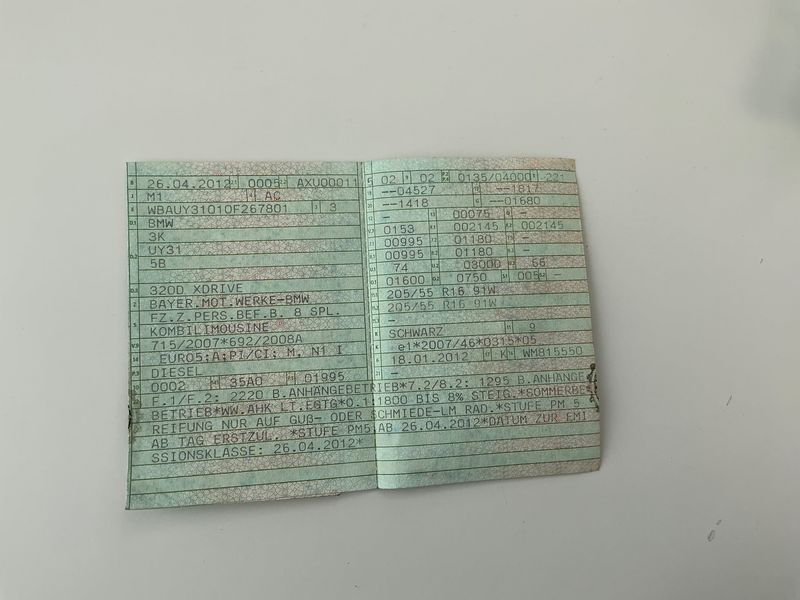 26.04.2012 0005 AXU00011
M1 AC
WBAUY31010F267801 3
BMW
3K
UY31
5B
320D XDRIVE
BAYER.MOT.WERKE-BMW
FZ.Z.PERS.BEF.B. 8 SPL.
KOMBILIMOUSINE
715/2007*692/2008A
EURO5;A;PI/CI; M, N1 I
DIESEL
0002 35A0 01995
02 02 0135/04000 221
--04527 --1817
--1418 --01680
- 00075 -
0153 002145 002145
00995 01180 -
00995 01180 -
74 03000 66
01600 0750 005 -
205/55 R16 91W
205/55 R16 91W
-
SCHWARZ 9
e1*2007/46*0315*05
18.01.2012 K WM815550
-
F.1/F.2: 2220 B.ANHÄNGEBETRIEB*7.2/8.2: 1295 B.ANHÄNGE
BETRIEB*WW.AHK LT.EGTG*0.1:1800 BIS 8% STEIG.*SOMMERBE
REIFUNG NUR AUF GUß- ODER SCHMIEDE-LM RAD.*STUFE PM 5
AB TAG ERSTZUL. *STUFE PM5 AB 26.04.2012*DATUM ZUR EMI
SSIONSKLASSE: 26.04.2012*